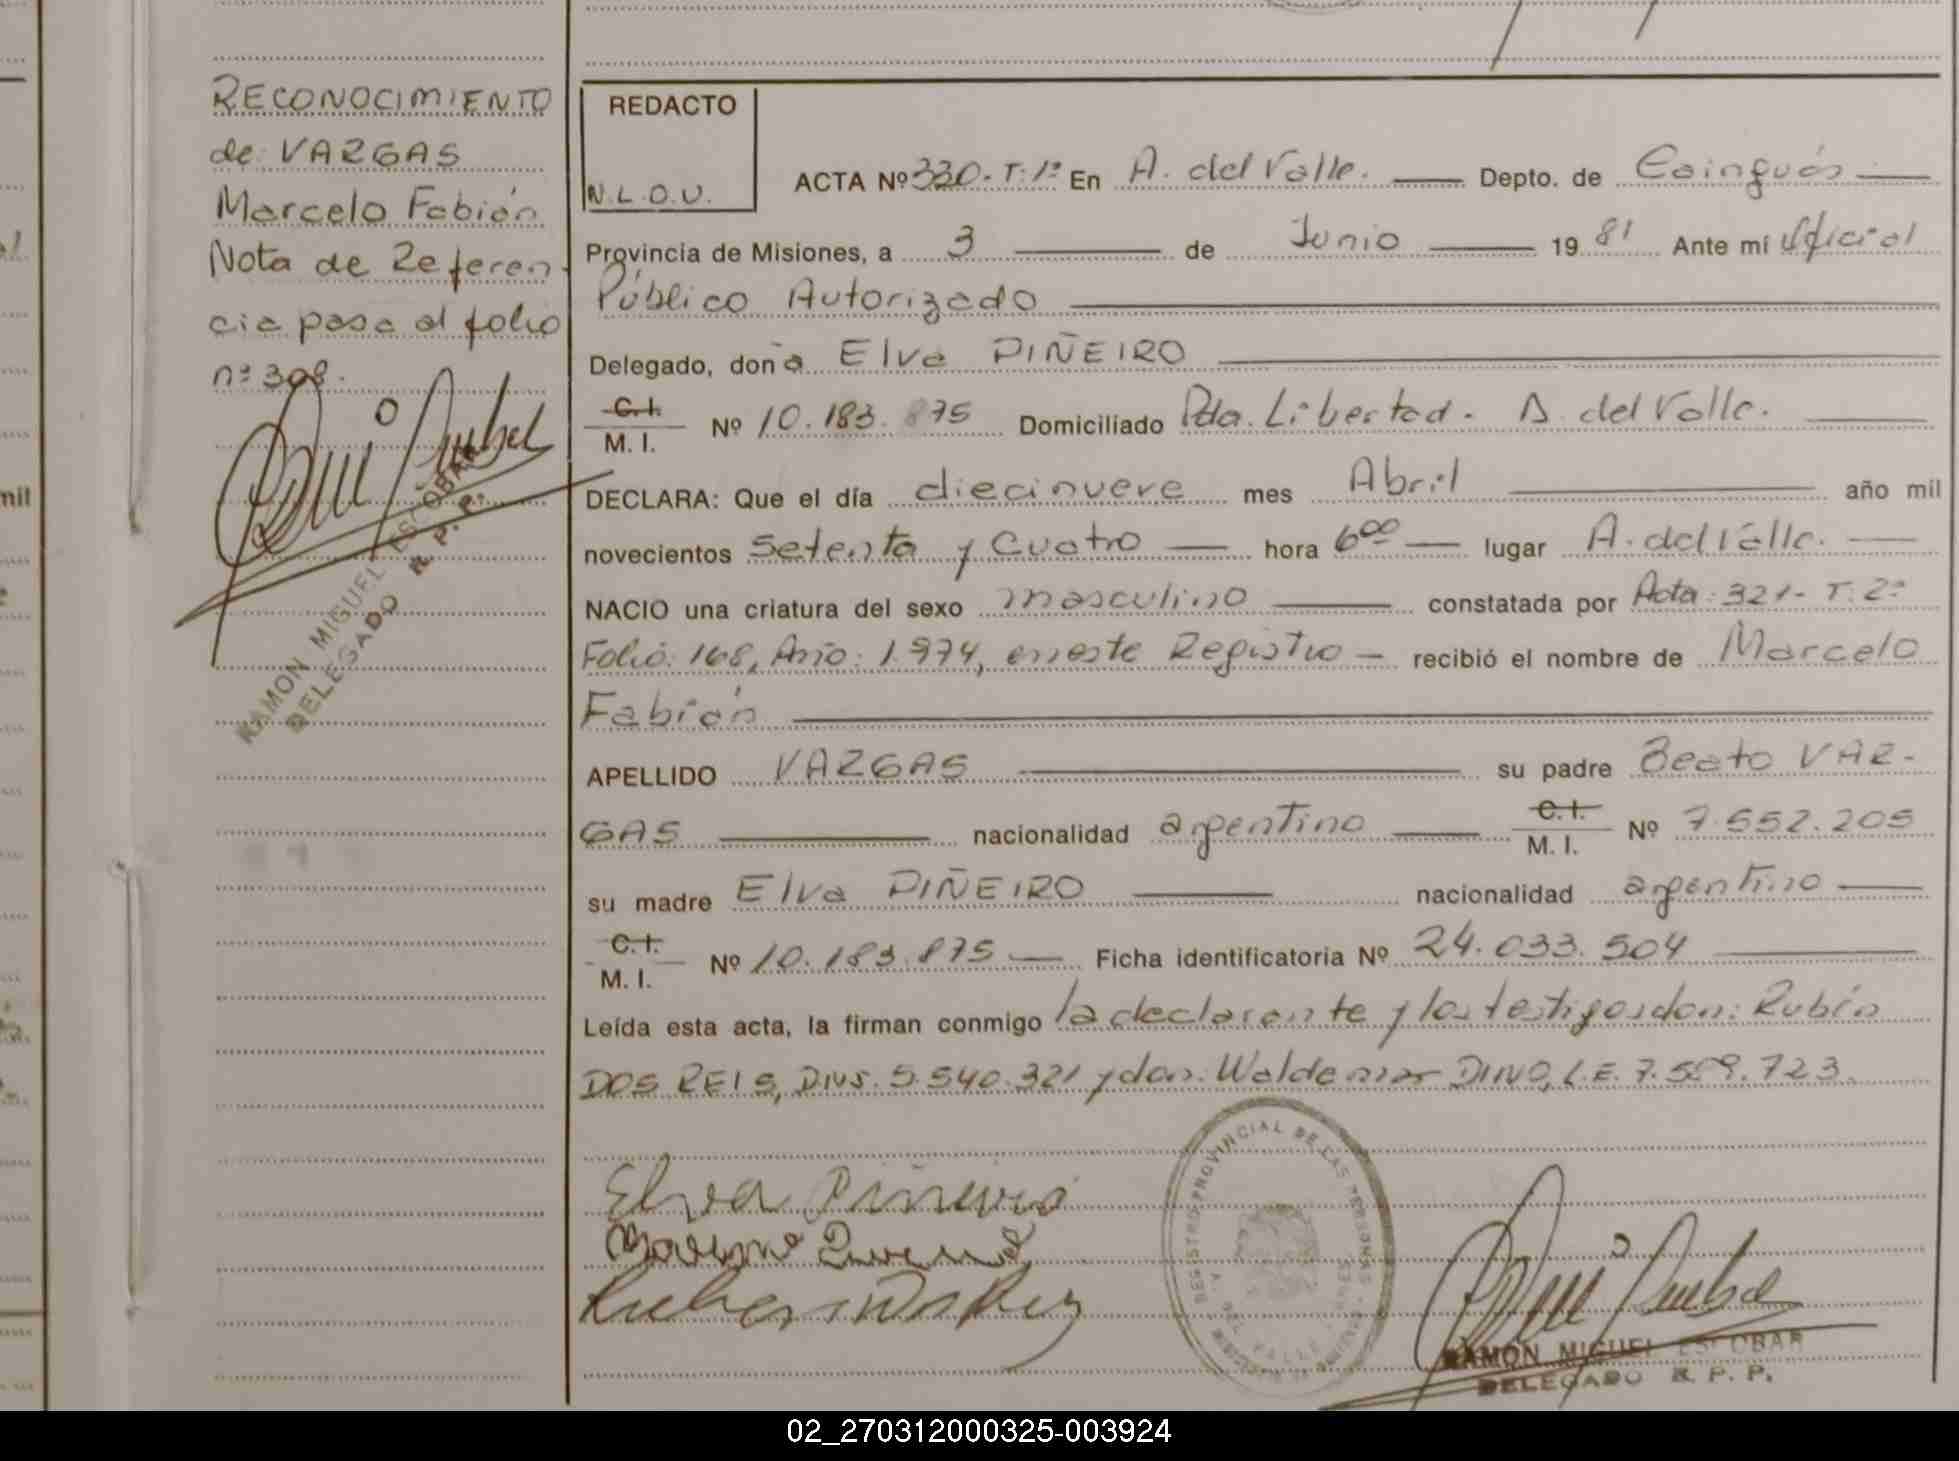 RECONOCIMIENTO
de VARGAS
Marcelo Fabián
Nota de Referen-
cia pasa al folio
nº 308.
RAMON MIGUEL ESCOBAR
DELEGADO R. P. P.
REDACTO
N.L.O.U.
ACTA Nº 330. T: 1º En A. del Valle. Depto. de Cainguás
Provincia de Misiones, a 3 de Junio 1981 Ante mí Oficial
Público Autorizado
Delegado, doña Elva PIÑEIRO
C.I. M. I. Nº 10.183.875 Domiciliado Pda. Libertad. A. del Valle.
DECLARA: Que el día diecinueve mes Abril año mil
novecientos setenta y cuatro hora 6⁰⁰ lugar A. del Valle.
NACIO una criatura del sexo masculino constatada por Acta: 321- T: 2º
Folio: 168, Año: 1.974, en este Registro recibió el nombre de Marcelo
Fabián
APELLIDO VARGAS su padre Beato VAR-
GAS nacionalidad argentino C.I. M. I. Nº 7.552.205
su madre Elva PIÑEIRO nacionalidad argentino
C.I. M. I. Nº 10.183.875 Ficha identificatoria Nº 24.033.504
Leída esta acta, la firman conmigo la declarante y los testigos don: Rubén
DOS REIS, 5.540.321 y don: Waldemar L.E. 7.509.723.
Elva Piñeiro
REGISTRO PROVINCIAL DE LAS PERSONAS
A. DEL VALLE
RAMON MIGUEL ESCOBAR
DELEGADO R. P. P.
mil
02_270312000325-003924